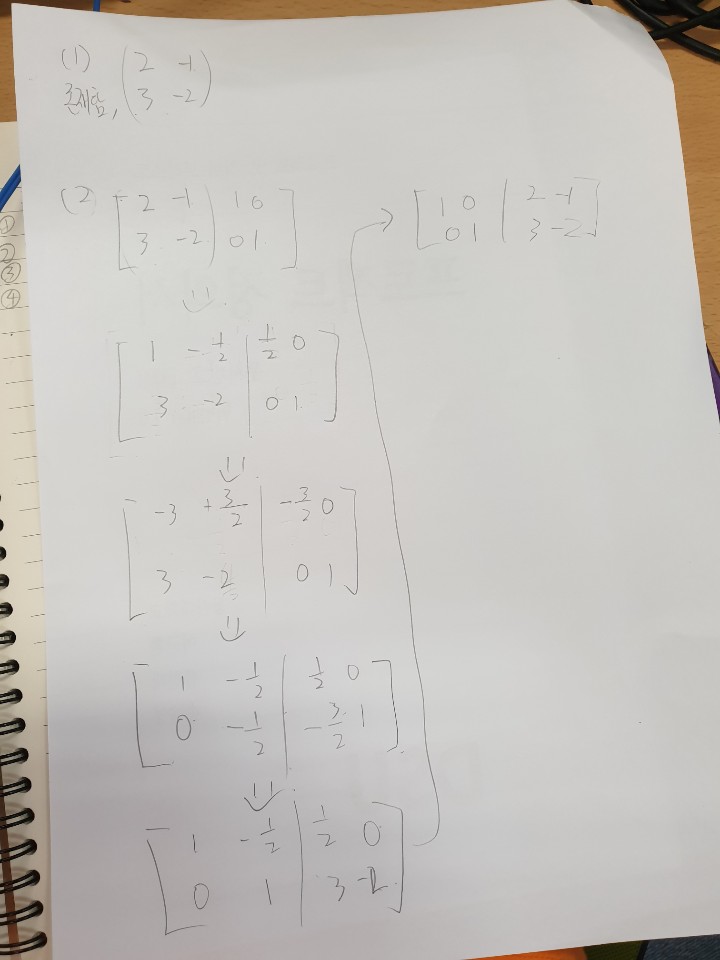 (1) ( 2 -1
존재함, 3 -2 )
(2) [ 2 -1 | 1 0
3 -2 | 0 1 ]
⇓
[ 1 -1/2 | 1/2 0
3 -2 | 0 1 ]
⇓
[ -3 +3/2 | -3/2 0
3 -2 | 0 1 ]
⇓
[ 1 -1/2 | 1/2 0
0 -1/2 | -3/2 1 ]
⇓
[ 1 -1/2 | 1/2 0
0 1 | 3 -2 ]
→ [ 1 0 | 2 -1
0 1 | 3 -2 ]
①
②
③
④